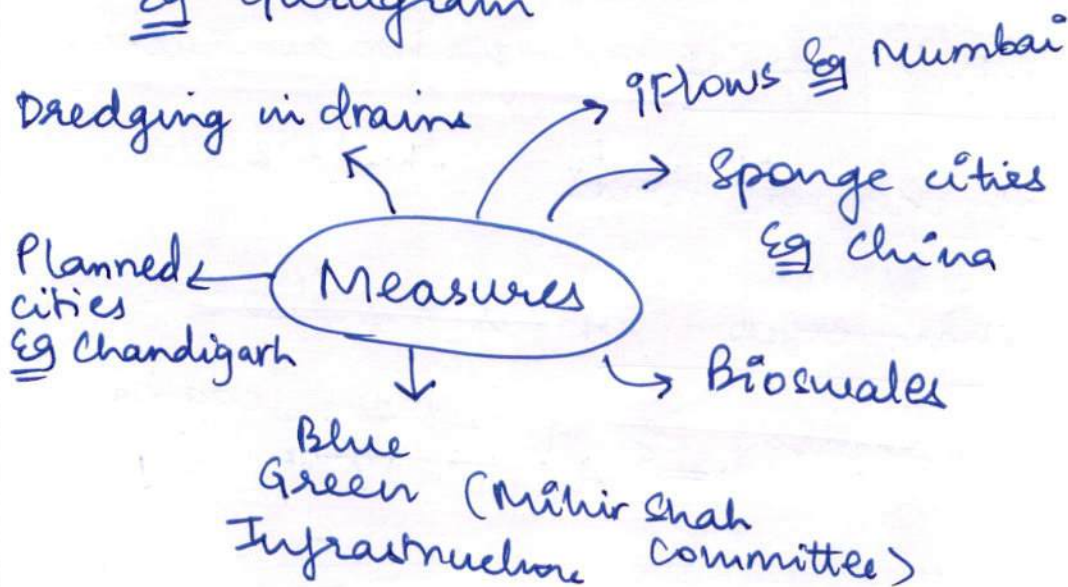 Eg Gurugram
Dredging in drains
iFlows Eg Mumbai
Sponge cities
Eg China
Planned
cities
Eg Chandigarh
Measures
Bioswales
Blue
Green (Mihir Shah
Infrastructure Committee)